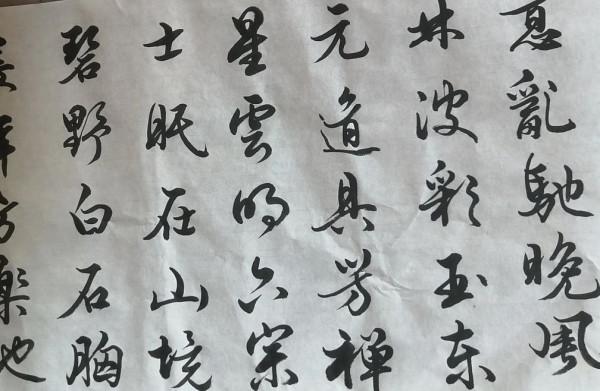 息亂馳晚風
林波彩玉东
元道具芳禅
星雲的六宗
士眠在山境
碧野白石胸
年方樂地